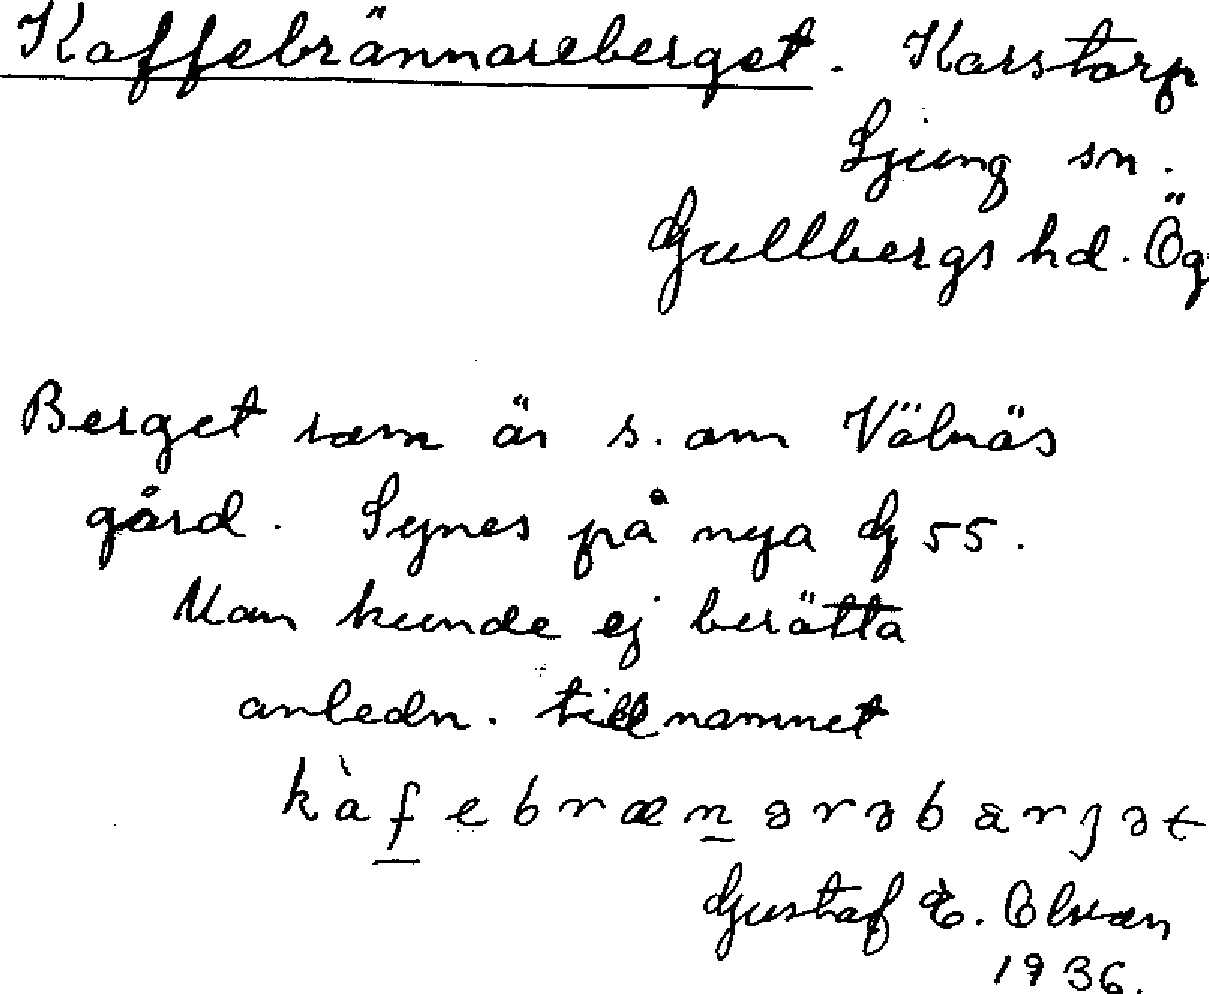 Kaffebrännareberget. Karstorp
Ljung sn.
Gullbergs hd. Ög
Berget som är s. om Välnäs
gård. Synes på nya G 55.
Man kunde ej berätta
anledn. till namnet
kàfebrænərəbarjət
Gustaf E. Olsson
1936.